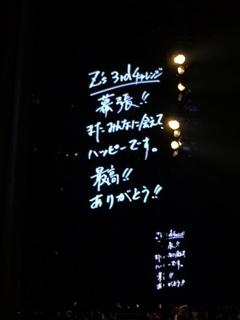 Z's 3rdチャレンジ
幕張!!
また、みんなに会えて、
ハッピーです。
最高!!
ありがとう!!